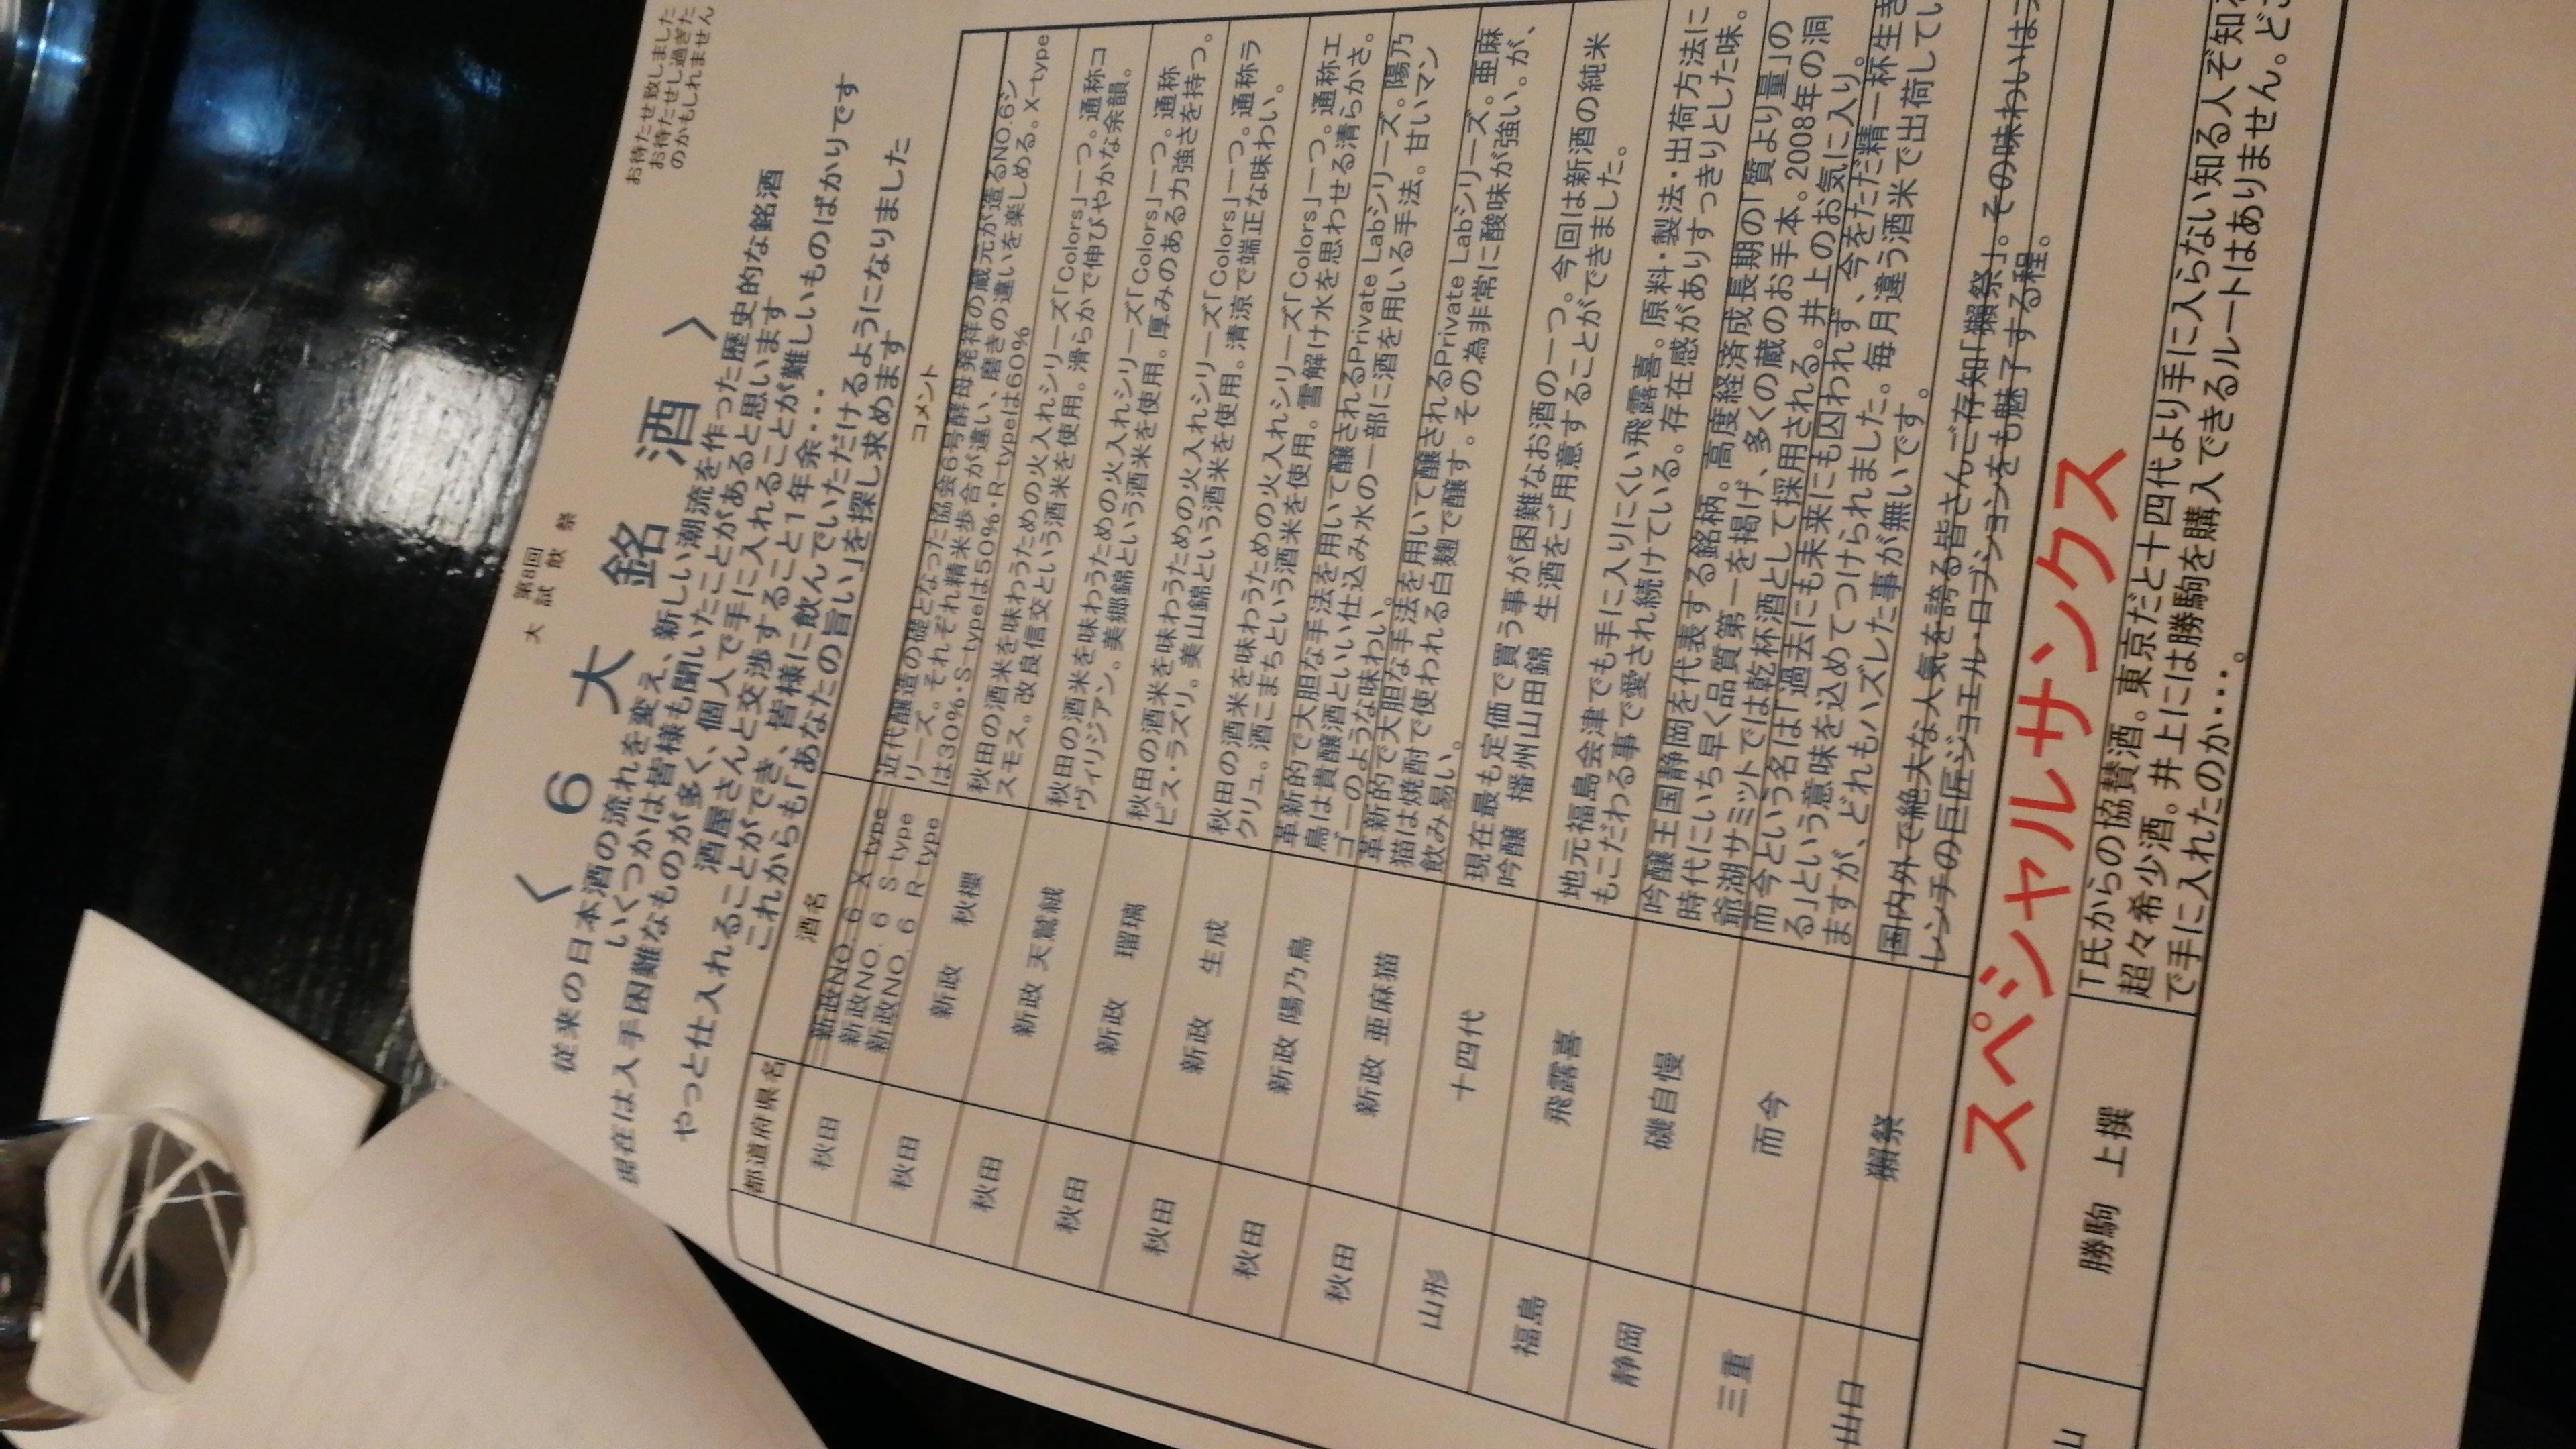 第8回
大 試 飲 祭
お待たせ致しました
お待たせし過ぎた
のかもしれません
〈 6 大 銘 酒 〉
従来の日本酒の流れを変え、新しい潮流を作った歴史的な銘酒
いくつかは皆様も聞いたことがあると思います
現在は入手困難なものが多く、個人で手に入れることが難しいものばかりです
酒屋さんと交渉すること1年余・・・
やっと仕入れることができ、皆様に飲んでいただけるようになりました
これからも「あなたの旨い」を探し求めます
都道府県名 酒名 コメント
秋田
新政NO. 6 X-type
新政NO. 6 S-type
新政NO. 6 R-type
近代醸造の礎となった協会6号酵母発祥の蔵元が造るNO.6シ
リーズ。それぞれ精米歩合が違い、磨きの違いを楽しめる。X-type
は30%・S-typeは50%・R-typeは60%
秋田 新政 秋櫻
秋田の酒米を味わうための火入れシリーズ「Colors」一つ。通称コ
スモス。改良信交という酒米を使用。滑らかで伸びやかな余韻。
秋田 新政 天鵞絨
秋田の酒米を味わうための火入れシリーズ「Colors」一つ。通称
ヴィリジアン。美郷錦という酒米を使用。厚みのある力強さを持つ。
秋田 新政 瑠璃
秋田の酒米を味わうための火入れシリーズ「Colors」一つ。通称ラ
ピス・ラズリ。美山錦という酒米を使用。清涼で端正な味わい。
秋田 新政 生成
秋田の酒米を味わうための火入れシリーズ「Colors」一つ。通称エ
クリュ。酒こまちという酒米を使用。雪解け水を思わせる清らかさ。
秋田 新政 陽乃鳥
革新的で大胆な手法を用いて醸されるPrivate Labシリーズ。陽乃
鳥は貴醸酒といい仕込み水の一部に酒を用いる手法。甘いマン
ゴーのような味わい。
秋田 新政 亜麻猫
革新的で大胆な手法を用いて醸されるPrivate Labシリーズ。亜麻
猫は焼酎で使われる白麹で醸す。その為非常に酸味が強い。が、
飲み易い。
山形 十四代
現在最も定価で買う事が困難なお酒の一つ。今回は新酒の純米
吟醸 播州山田錦 生酒をご用意することができました。
福島 飛露喜
地元福島会津でも手に入りにくい飛露喜。原料・製法・出荷方法に
もこだわる事で愛され続けている。存在感がありすっきりとした味。
静岡 磯自慢
吟醸王国静岡を代表する銘柄。高度経済成長期の「質より量」の
時代にいち早く品質第一を掲げ、多くの蔵のお手本。2008年の洞
爺湖サミットでは乾杯酒として採用される。井上のお気に入り。
三重 而今
而今という名は「過去にも未来にも囚われず、今をただ精一杯生き
る」という意味を込めてつけられました。毎月違う酒米で出荷してい
ますが、どれもハズレた事が無いです。
山口 獺祭
国内外で絶大な人気を誇る皆さんご存知「獺祭」。その味わいは
レンチの巨匠ジョエル・ロブションをも魅了する程。
スペシャルサンクス
勝駒 上撰
T氏からの協賛酒。東京だと十四代より手に入らない知る人ぞ知
超々希少酒。井上には勝駒を購入できるルートはありません。ど
で手に入れたのか・・・。